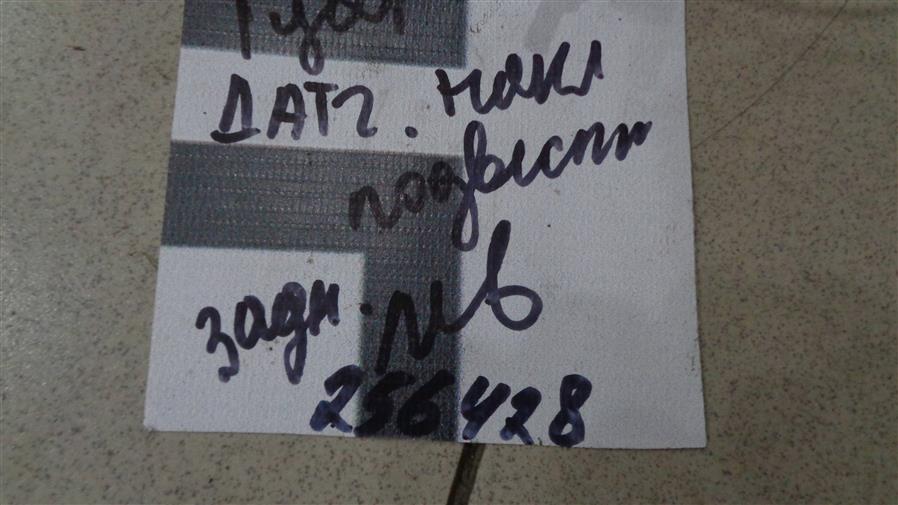 ДАТЧ. накл
подвески
задн. лев
256428